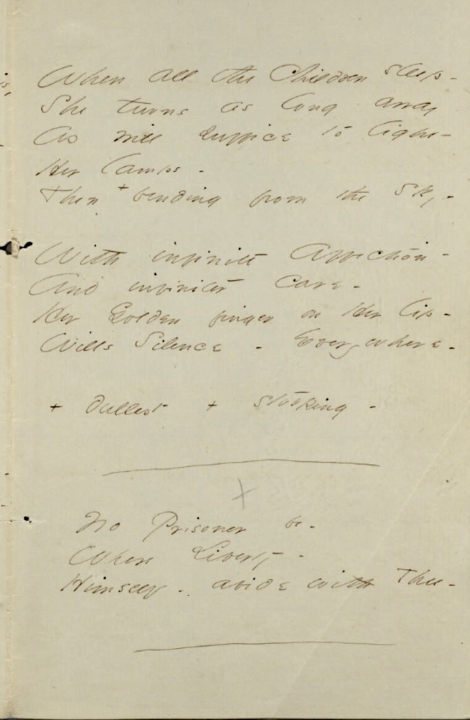 When all the Children sleep -
She turns as long away
As will suffice to light
Her lamps -
Then + bending from the Sky -
With infinite Affection -
And infiniter Care -
Her Golden finger on Her lip -
Wills Silence - Everywhere -
+ dullest + stooping -
No Prisoner be -
Where Liberty -
Himself - abide with Thee -